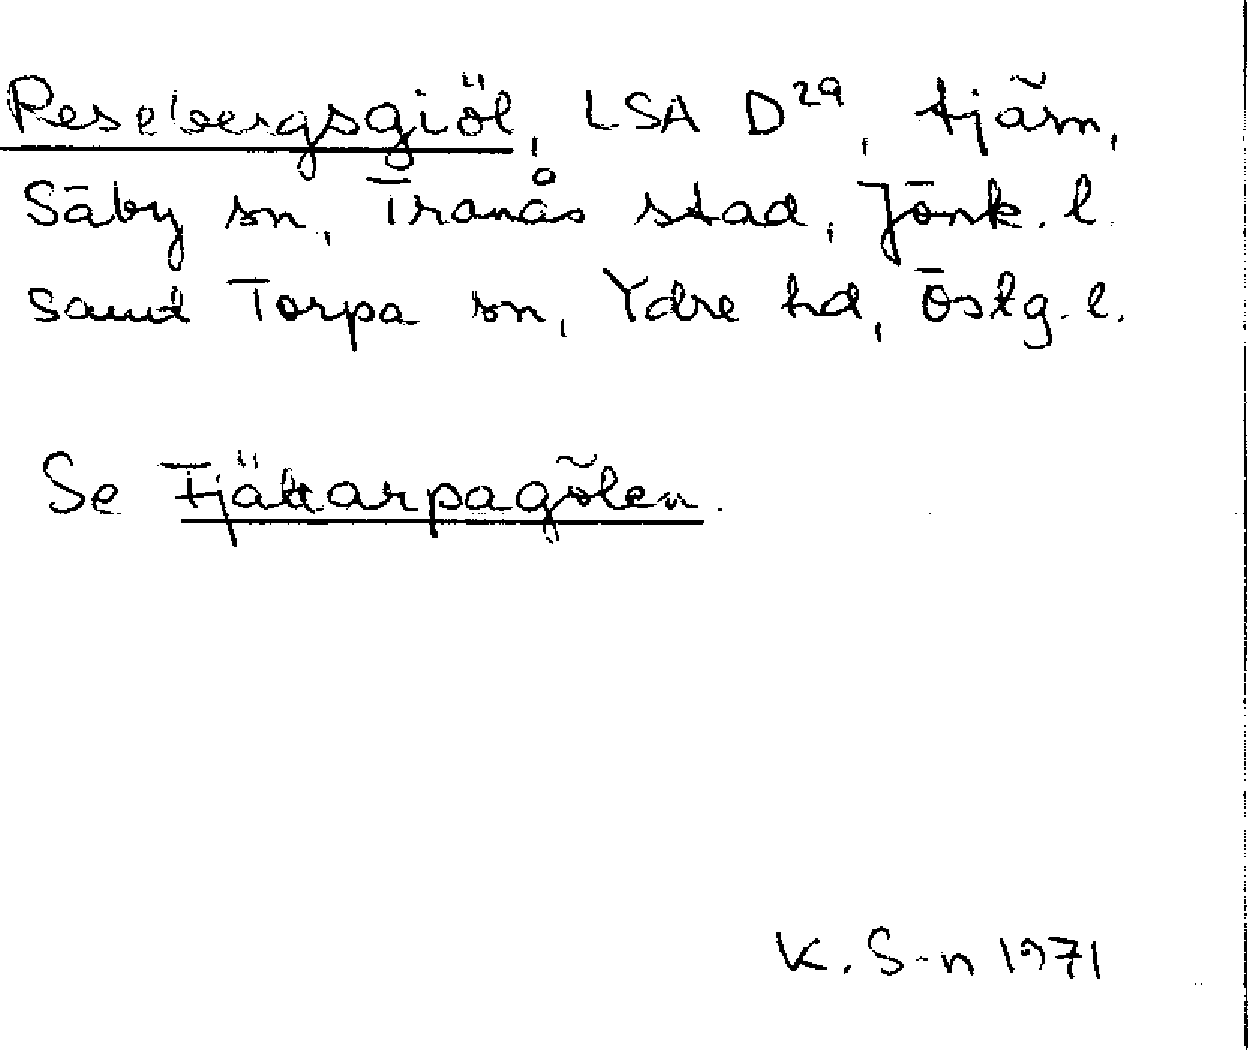 Resebergsgiöl, LSA D29, tjärn,
Säby sn, Tranås stad, Jönk. l.
samt Torpa sn, Ydre hd, Östg. l.
Se Fjättarpagölen.
K. S-n 1971